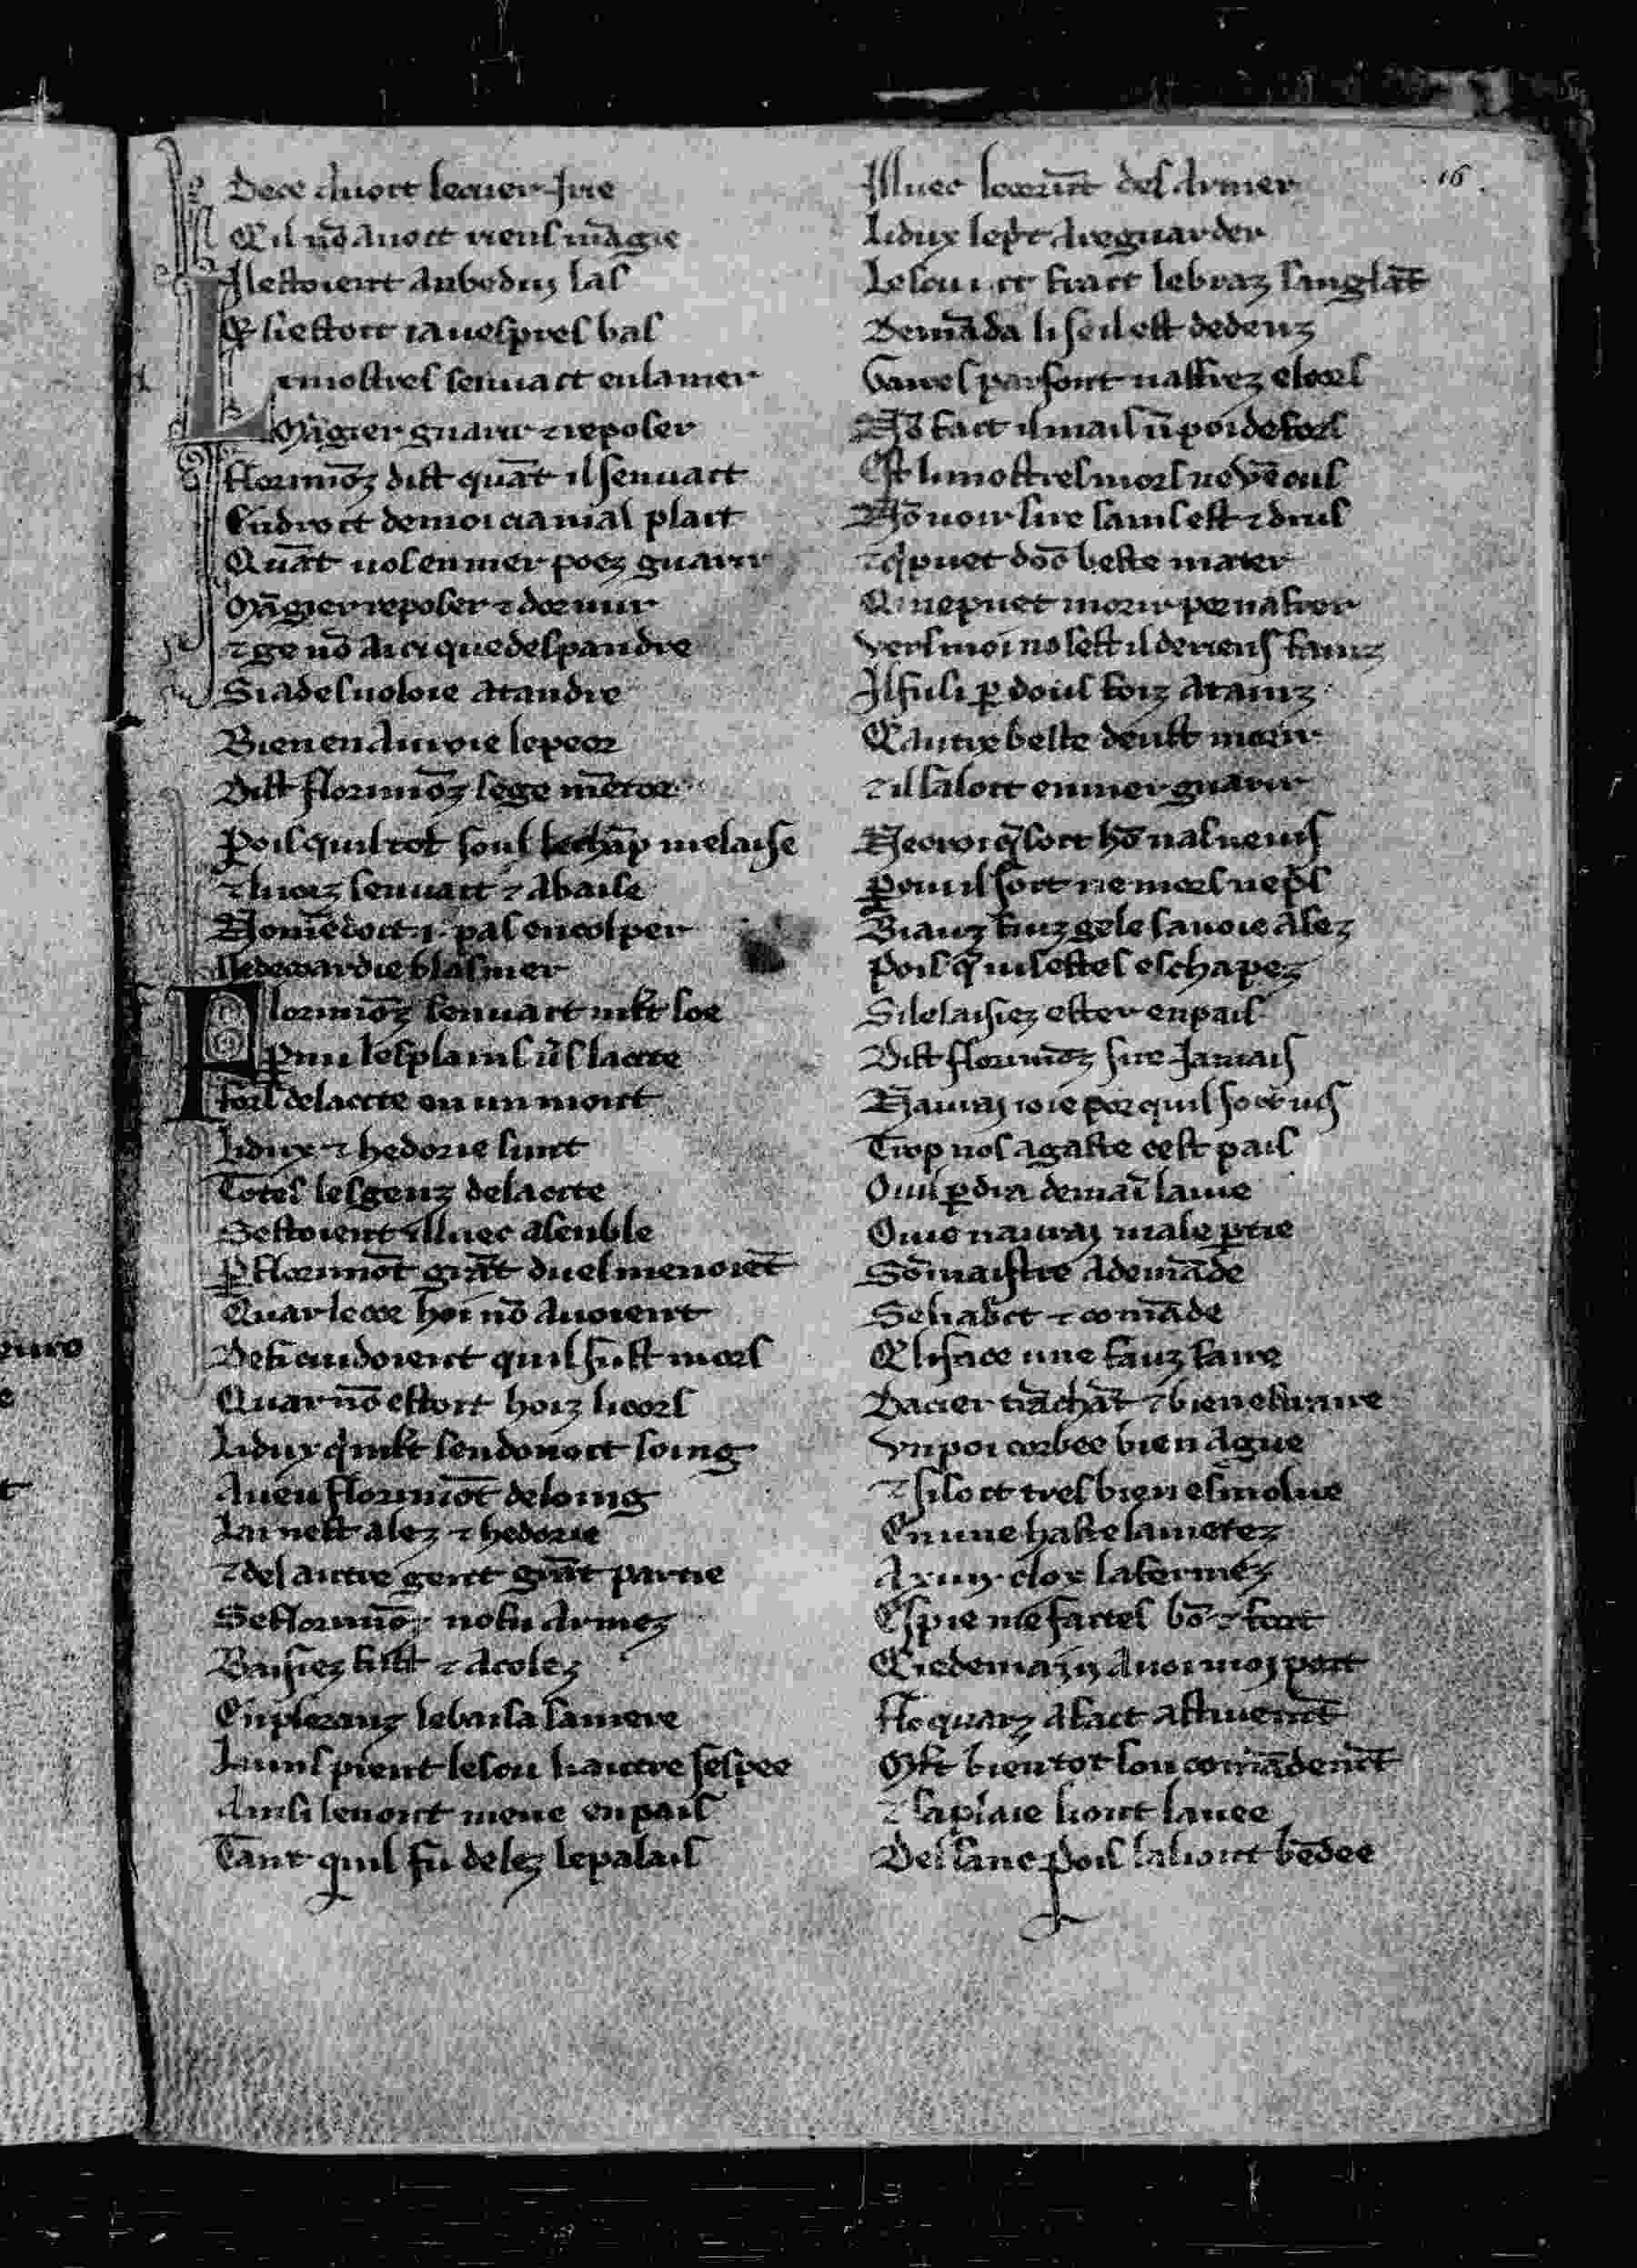 Dece auoit lecuer Irie
Q il nō auoit riens māgie
Il estoient anbedui las
Et si estoit ia uespres bas
Li mostres senuait enlamer
Māgier guarir ⁊ reposer
florimōz dist quāt il senuait
Endroit demoi cia mal plait
Quāt uos en mer poez guarir
Māgier reposer ⁊ dormir
⁊ ge nō ai ci que despandre
Si ades uoloie atandre
Bien en auroie lepeor
Dist florimōz se ge mētor
Pois quil tot soul lechāp melaise
⁊ li iorz senuait ⁊ abaise
No mē doit .i. pas encolper
Ne decoardie blasmer
Florimōz senuait mlt̄ loe
Parmi les plains u̾s lacite
fors delacite en un mont
Lidux ⁊ hedorie sunt
Totes les genz delacite
Sestoient illuec asenble
P̲ florimōt grāt duel menoiēt
Quar lecoe hoi nō auoient
De fi cuidoient quil fust mors
Quar nō estoit hoiz li cors
Lidux q̄ mlt̄ sendonoit soing
A ueu florimōt de loing
La i nest alez ⁊ hedorie
⁊ del autre gent grāt partie
Se florimōz no fu armez
Baisiez fust ⁊ acolez
En ploranz lebaisa samere
Luns prent lescu li autre sespee
Ainsi lenont mene en pais
Tant quil fu delez lepalais
Illuec lecorūt des armer
Lidux leprēt areguarder
Lescu i. et trait lebraz sanglāt
Demāda li se il est dedenz
Gaires parfont nafrez elcors
Nō fait il mais ū poi defors
Est li mostres mors ne uēcus
Nō uoir sire sains est ⁊ drus
⁊ q̄ puet dōc beste mater
Qui nepuet morir por nafrer
Vers moi no sest il deriens fainz
Il fu li p̲ dous foiz atainz
Q autre beste deust morir
⁊ il saloit en mer guarir
Ne croi q̄ soit hō nascuens
P̲ cui il soit ne mors ne p̄s
Biauz fiuz ge le sauoie asez
Pois q̄ uis estes eschapez
Si lelaisiez ester en pais
Dist florimōz sire Jamais
N aurai ioie por quil soit uis
Trop nos agaste cest pais
O uis p̲dra demaī lauie
O ie n aurai male p̲tie
Sō maistre a demāde
Se li a dit ⁊ comāde
Q li face une fauz faire
D acier trāchāt ⁊ bien esclaire
Vn poi corbee bien ague
⁊ si soit tres bien esmolue
En une haste lametez
A xiiij. clox lafermez
Espie me faites bō ⁊ fort
Q ie demain auoi moi port
floquarz a fait astiuemēt
Mlt̄ bien tot son comādemēt
⁊ saplaie li ont lauee
Del sanc pois la li ont bēdee
16